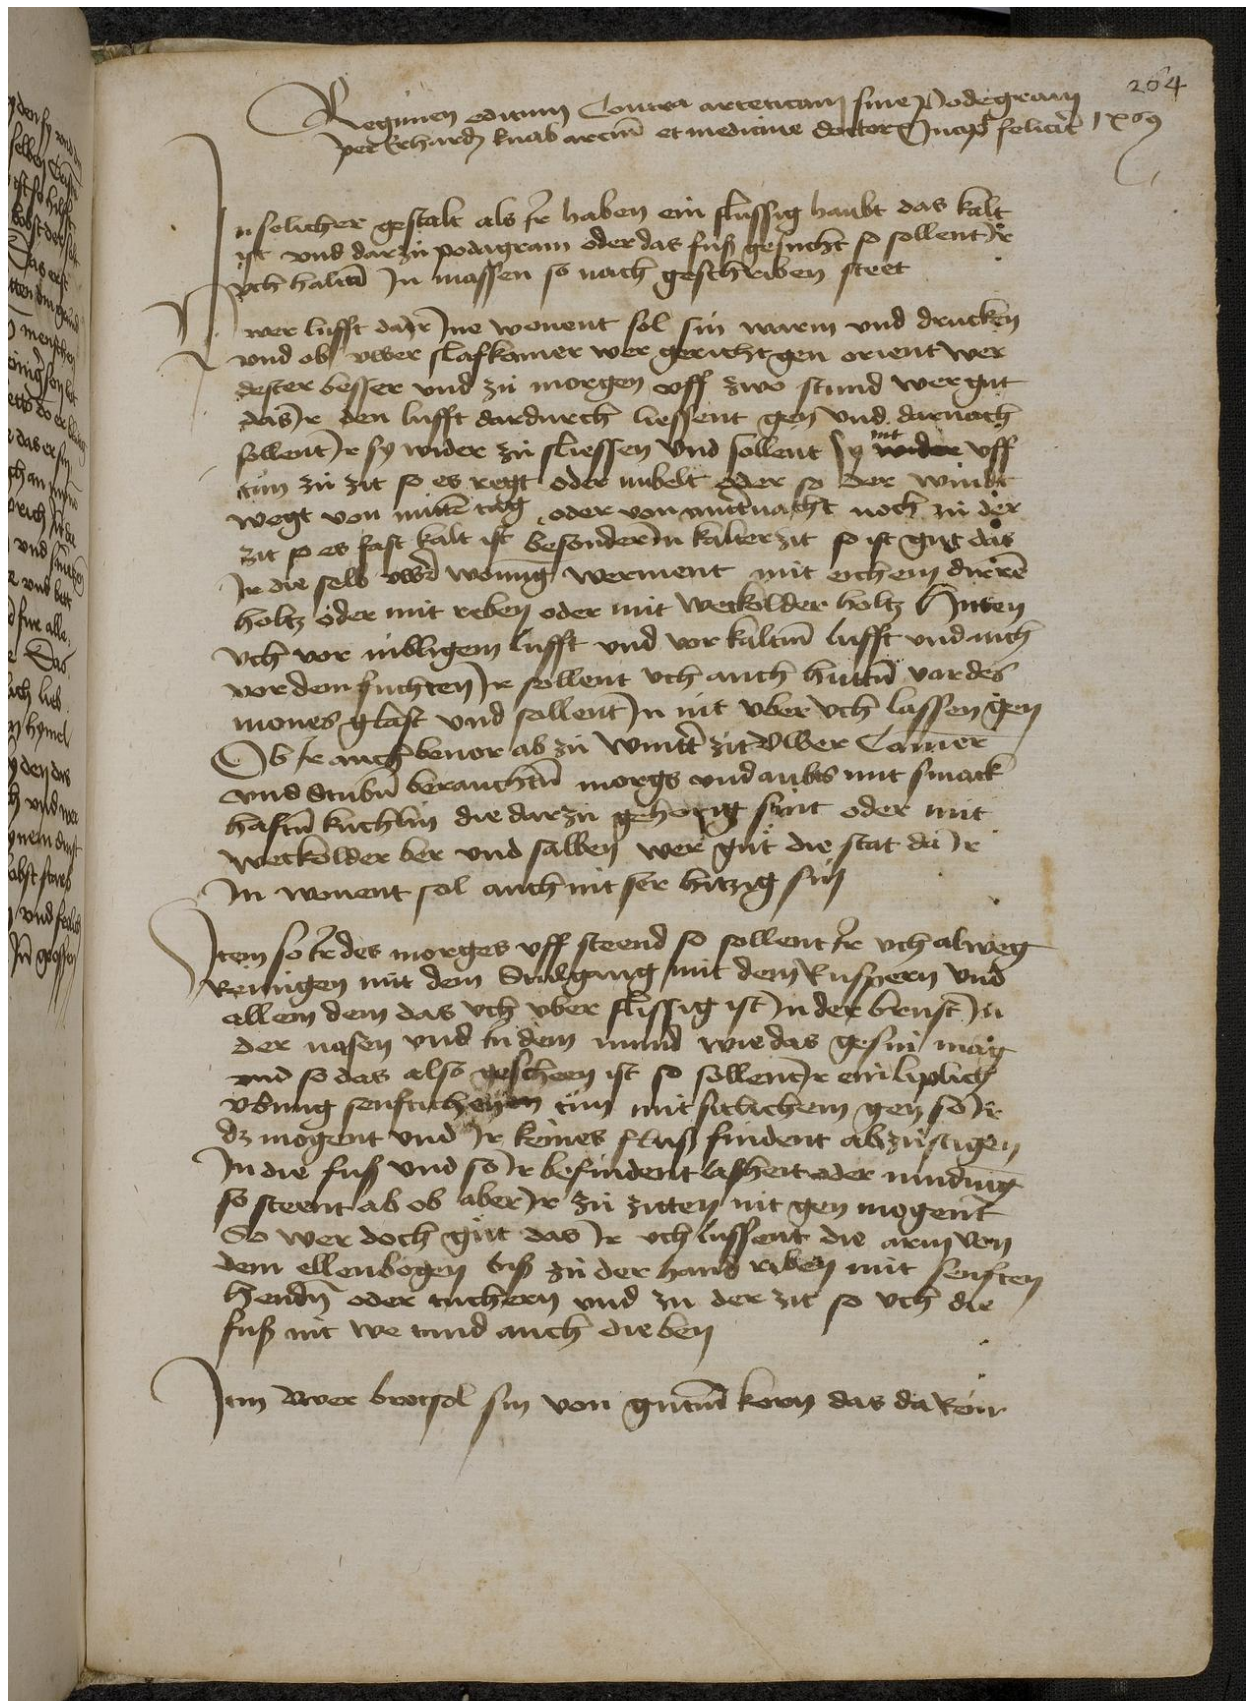 264
Regimen editum Contra arteticam siue Podegram
per Erhardum knab arcium et medicine doctorem Incipit feliciter 1469
In solicher gestalt als Ir haben ein flussig haubt das kalt
ist vnd darzu podagram oder das fuß gesucht so sollent Ir
vch halten In massen so nach geschriben steet
Vwer lufft da Ir Ine wonent sol sin warm vnd drucken
vnd ob vwer slafkamer wer gericht gen orient wer
dester besser vnd zu morgen vff zwo stund wer gut
das Ir den lufft dardurch liessent gen vnd darnach
sollent Ir sy wider zu sliessen vnd sollent sy nit vff
tun zu zit so es regt oder nibelt oder so der windt
wegt von mitte tag oder von mitternacht noch zu der
zit so es fast kalt ist besonder In kalter zit so ist gut das
Ir die selb vwer wonung werment mit eichem durre
holtz oder mit reben oder mit weckolder holtz Hutten
vch vor nibligem lufft vnd vor kaltem lufft vnd auch
vor dem fuchten Ir sollent vch auch hutten vor des
mones glast vnd sollent In nit vber vch lassen gen
Ob Ir auch beuor ab zu winter zit Vwer Camer
vnd stuben berauchten morgs vnd aubts mit smack
haften kuchlin die darzu gehorig sint oder mit
weckolder ber vnd salben wer gut die stat da Ir
In wonent sol auch nit ser hitzig sin
Item so Ir des morges vff steend so sollent Ir vch alweg
Reinigen mit dem Stulgang mit dem Ruspern vnd
allem dem das vch vber flissig ist In der brust In
der nasen vnd In dem mund wie das gesin mag
vnd so das also gescheen ist so sollent Ir ein liplich
vbung tun mit sitlichem gen so Ir
dz mogent vnd Ir keines fluß findent abzustigen
In die fuß vnd so Ir befindent lasheit oder mudung
so steent ab ob aber Ir zu zitten nit gen mogent
So wer doch gut das Ir vch liessent die arm von
dem ellenbogen biß zu der hand riben mit senften
henden oder tuchern vnd zu der zit so vch die
fuß nit we tund auch die ben
Item Vwer brot sol sin von gutem korn das da Rein